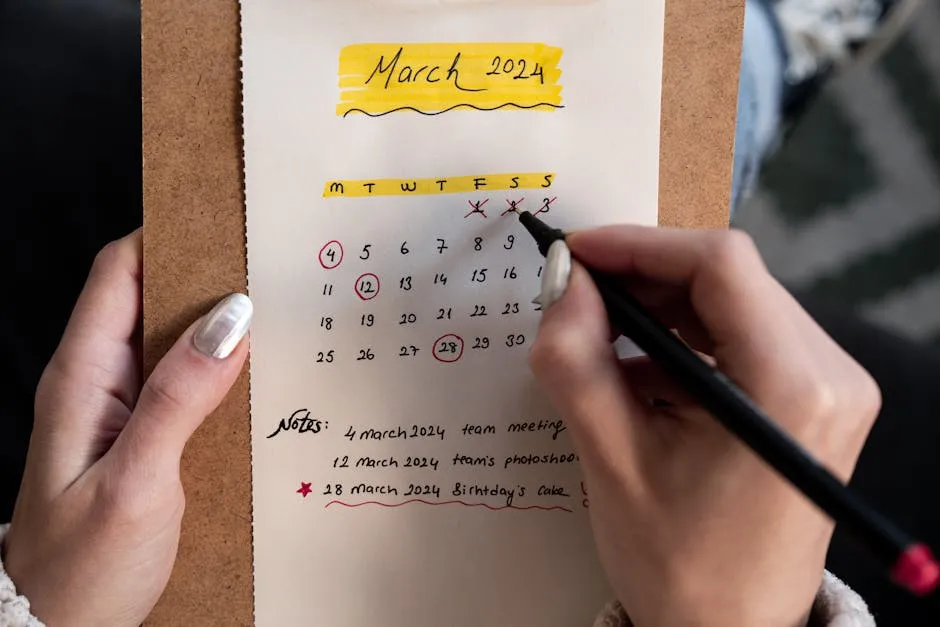 March 2024
M T W T F S S
1 2 3
4 5 6 7 8 9
11 12 13 14 15 16
18 19 20 21 22 23
25 26 27 28 29 30
Notes:
4 march 2024 team meeting
12 march 2024 team's
28 march 2024 Birhtday's cake